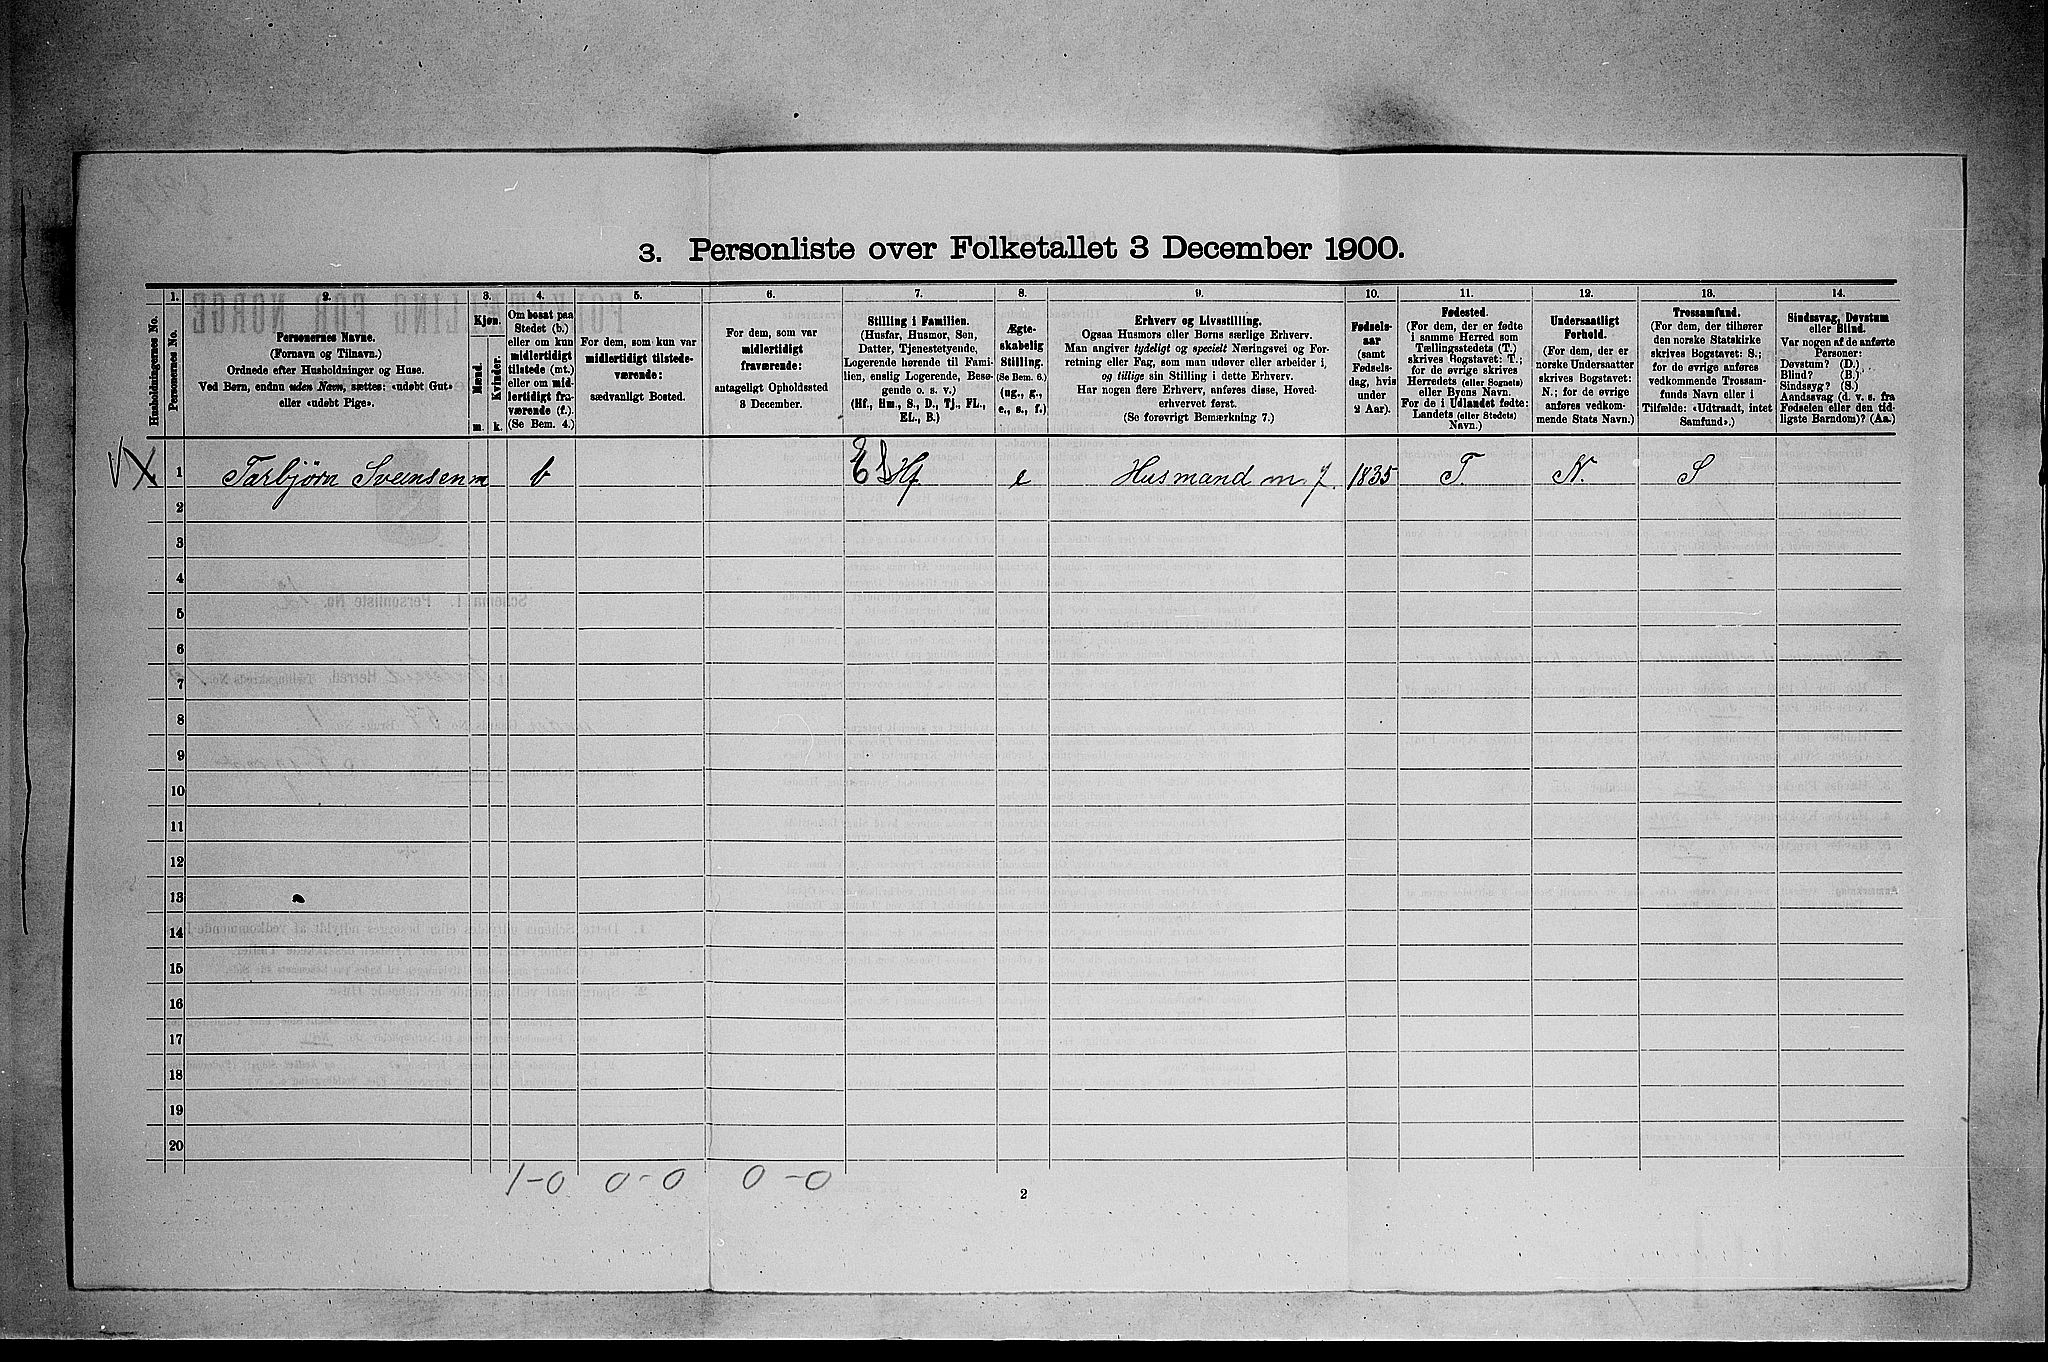 3. Personliste over Folketallet 3 December 1900.
Husholdningernes No.
1.
Personernes No.
2.
Personernes Navne.
(Fornavn og Tilnavn.)
Ordnede efter Husholdninger og Huse.
Ved Børn, endnu uden Navn, sættes: «udøbt Gut»
eller «udøbt Pige».
3.
Kjøn.
Mænd.
Kvinder.
m.
k.
4.
Om bosat paa
Stedet (b.)
eller om kun
midlertidigt
tilstede (mt.)
eller om mid-
lertidigt fra-
værende (f.)
(Se Bem. 4.)
5.
For dem, som kun var
midlertidigt tilstede-
værende:
sædvanligt Bosted.
6.
For dem, som var
midlertidigt
fraværende:
antageligt Opholdssted
3 December.
7.
Stilling i Familien.
(Husfar, Husmor, Søn,
Datter, Tjenestetyende,
Logerende hørende til Fami-
lien, enslig Logerende, Besø-
gende o. s. v.)
(Hf., Hm., S., D., Tj., FL.,
EL., B.)
8.
Ægte-
skabelig
Stilling.
(Se Bem. 6.)
(ug., g.,
e., s., f.)
9.
Erhverv og Livsstilling.
Ogsaa Husmors eller Børns særlige Erhverv.
Man angiver tydeligt og specielt Næringsvei og For-
retning eller Fag, som man udøver eller arbeider i,
og tillige sin Stilling i dette Erhverv.
Har nogen flere Erhverv, anføres disse, Hoved-
erhvervet først.
(Se forøvrigt Bemærkning 7.)
10.
Fødsels-
aar
(samt
Fødsels-
dag, hvis
under
2 Aar).
11.
Fødested.
(For dem, der er fødte
i samme Herred som
Tællingsstedets (T.)
skrives Bogstavet: T.;
for de øvrige skrives
Herredets (eller Sognets)
eller Byens Navn.
For de i Udlandet fødte:
Landets (eller Stedets)
Navn.)
12.
Undersaatligt
Forhold.
(For dem, der er
norske Undersaatter
skrives Bogstavet:
N.; for de øvrige
anføres vedkom-
mende Stats Navn.)
13.
Trossamfund.
(For dem, der tilhører
den norske Statskirke
skrives Bogstavet: S.;
for de øvrige anføres
vedkommende Trossam-
funds Navn eller i
Tilfælde: «Udtraadt, intet
Samfund».)
14.
Sindssvag, Døvstum
eller Blind.
Var nogen af de anførte
Personer:
Døvstum? (D.)
Blind? (B.)
Sindssyg? (S.)
Aandssvag (d. v. s. fra
Fødselen eller den tid-
ligste Barndom)? (Aa.)
1 Tarbjørn Svensen m b E L Hf. e Husmand m. J. 1835 T. N. S
2
3
4
5
6
7
8
9
10
11
12
13
14
15
16
17
18
19
20
1-0 0-0 0-0
2